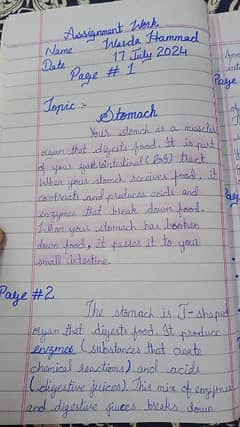 Assignment Work
Name Warda Hammad
Date 17 July 2024
Page # 1
Topic :-
Stomach
Your stomch is a muscles
organ that digests food. It is part
of your gastrointestinal (GI) tract
When your stomch receives food, it
contracts and produces acids and
enzymes that break down food.
When your stomach has broken
down food, it passes it to your
small intestine.
Page #2
The stomach is J-shaped
organ that digests food. It produce
enzymes (substances that create
chemical reactions) and acids
(digestive juices). This mix of enzymes
and digestive juices breaks down